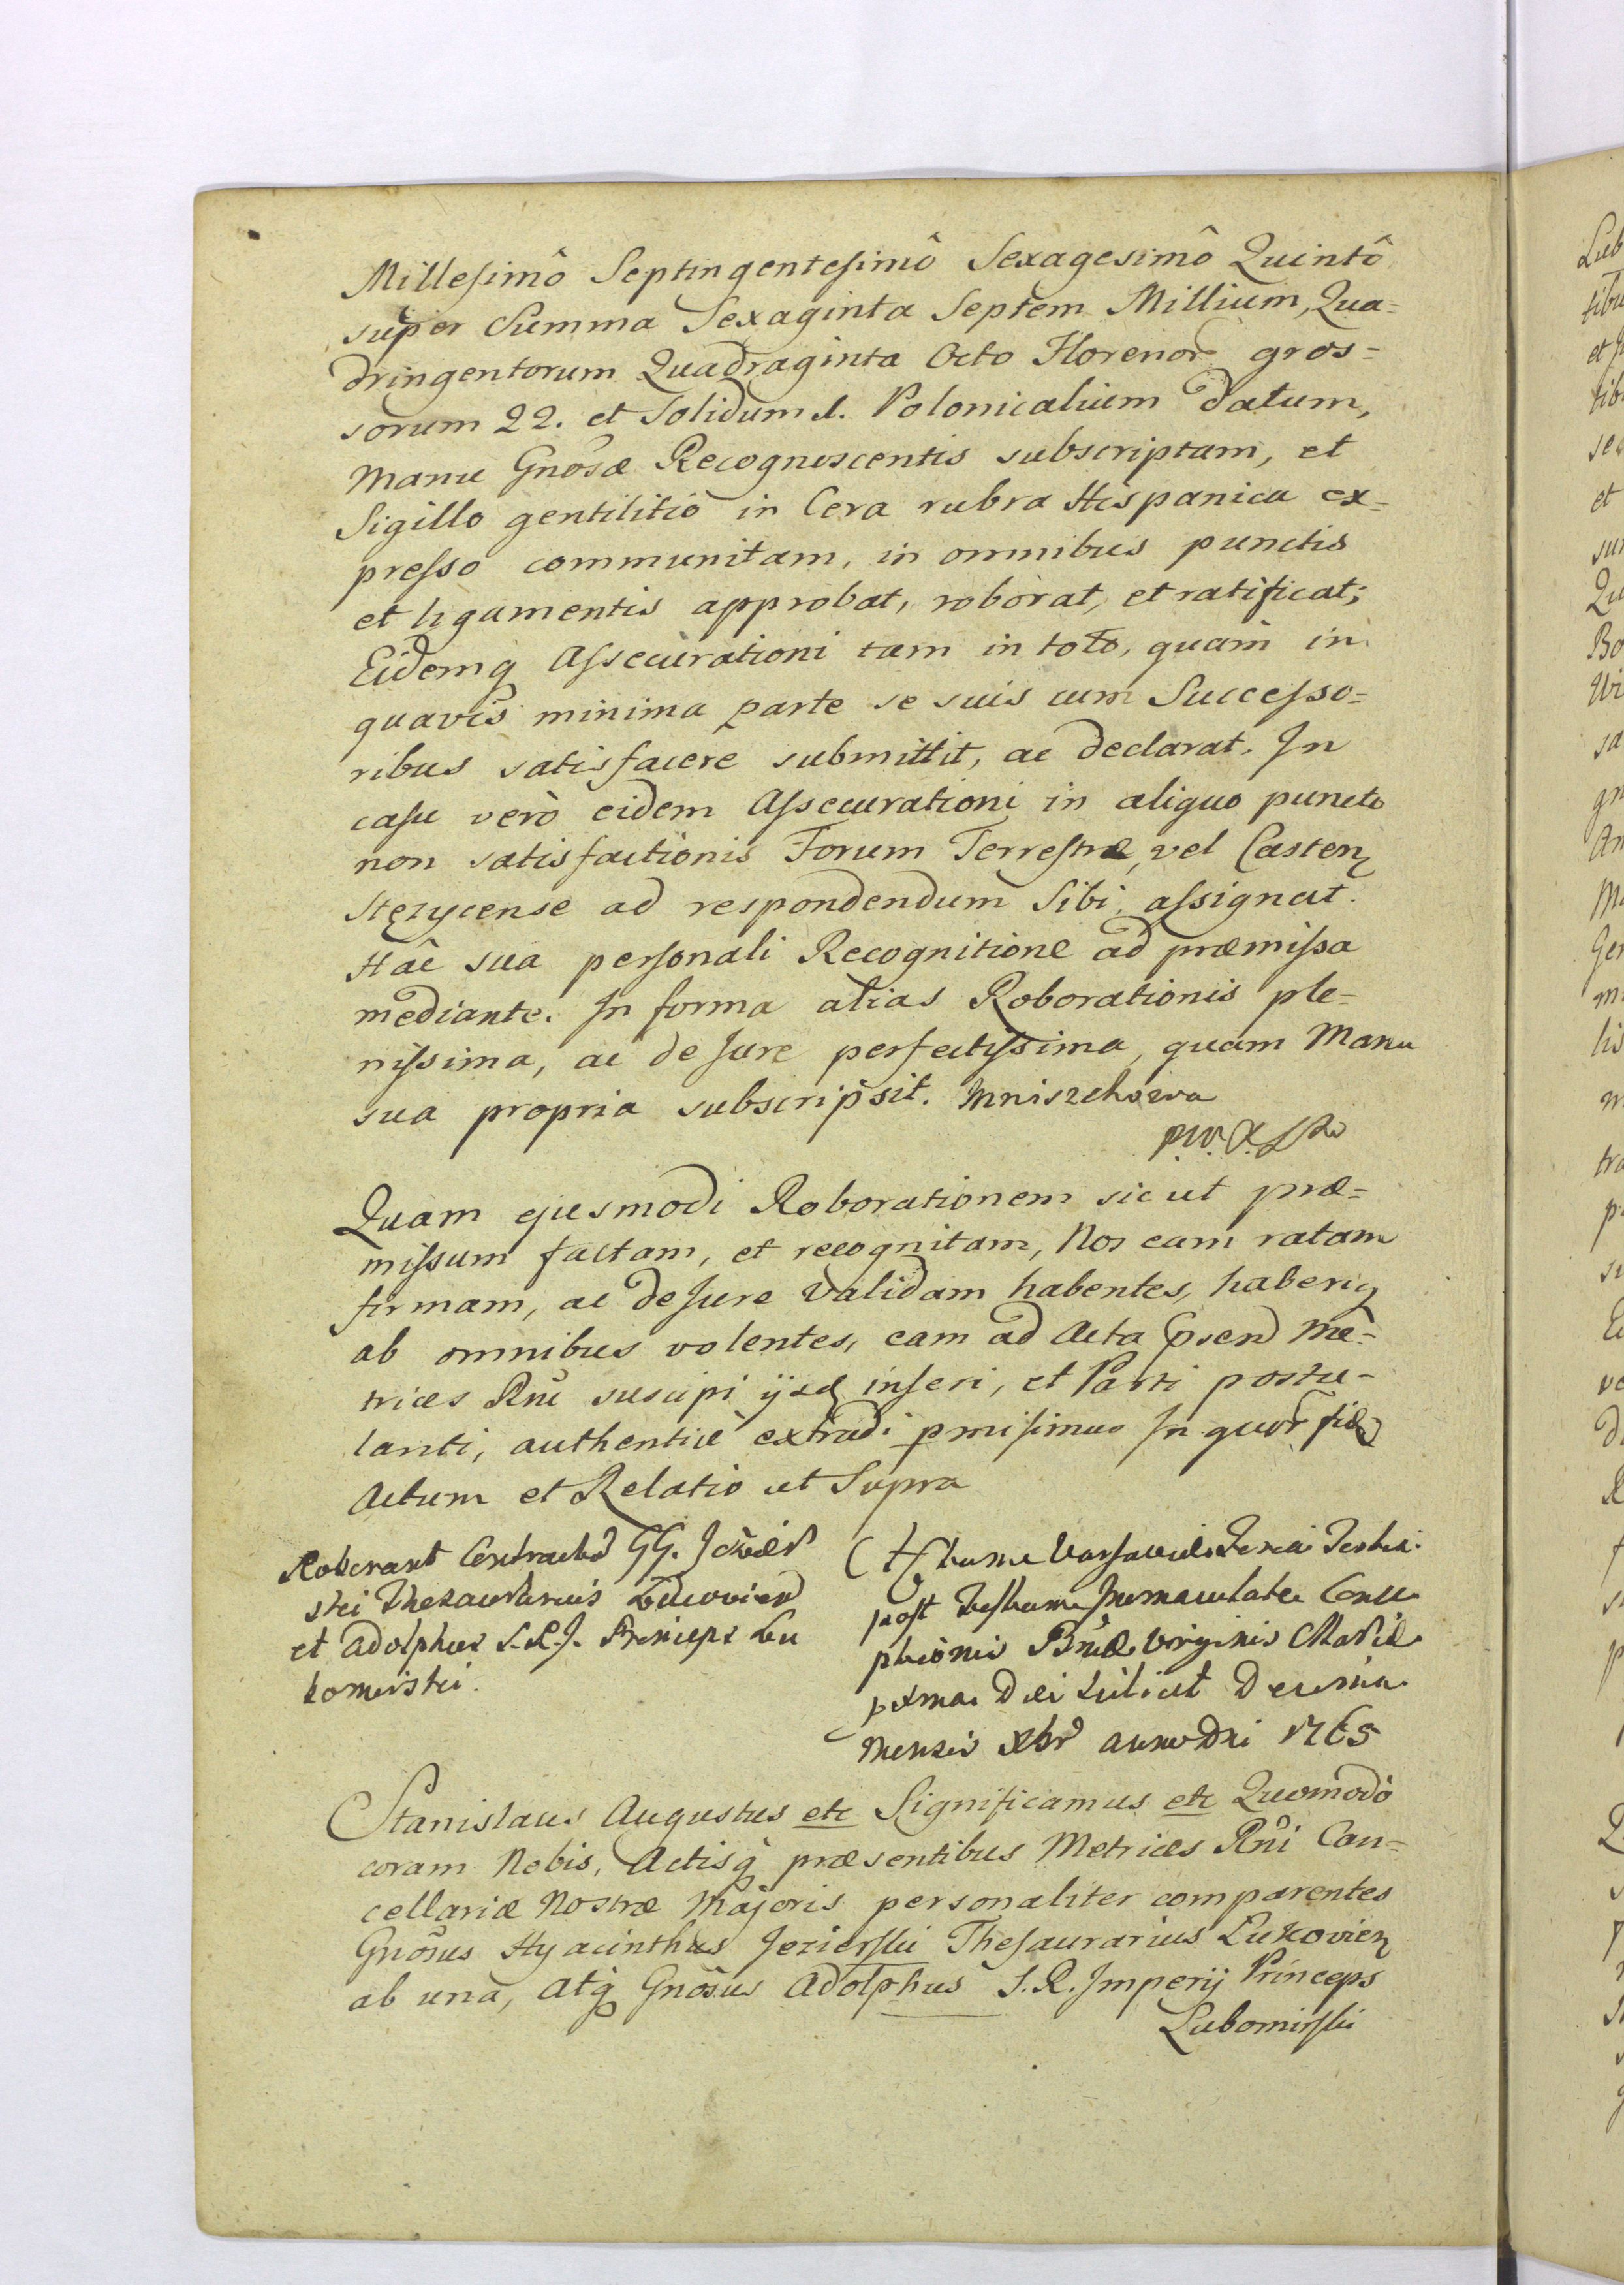 Millesimô Septingentesimô Sexagesimô Quintô
super Summa Sexaginta Septem Millium, Qua=
dringentorum Quadraginta Octo Florenor gros=
sorum 22. et Solidum 1. Polonicalium datum,
manu Gnosæ Recognoscentis subscriptam, et
Sigillo gentilitiô in Cera rubra Hispanica ex=
presso communitam, in omnibus punctis
et ligamentis approbat, roborat, et ratificat;
Eidemq Assecurationi tam in toto, quam in
quavis minima parte se suis cum Successo=
ribus satisfacere submittit, ac declarat. In
casu verò eidem Assecurationi in aliquo puncto
non satisfactionis Forum Terrestræ, vel Castren
Stezycense ad respondendum Sibi assignat.
Hâc sua personali Recognitione ad præmissa
mediante. In forma alias Roborationis ple=
nissima, ac de Jure perfectissima, quam Manu
sua propria subscripsit. Mniszchowa
P.W.X.
Quam ejusmodi Roborationem sicut præ=
missum factam, et recognitam, Nos eam ratam
firmam, ac de Jure validam habentes, haberiq
ab omnibus volentes, eam ad Acta psend Me=
trices Rni suscipi ijsq inseri, et Parti postu-
lanti, authenticè extradi pmisimus In quor fid
Actum et Relatio ut Supra
Roborant Contractû GG. Jezier
ski Thesaurarius Lucovien
et Adolphus S.R.I. Princeps Lu
bomirski.
Actum Varsaviæ Feria Tertia
post Festum Immaculatæ Conce
ptionis Bnæ Virginis Mariæ
pxma Dei scilicet Decima
Mensis Xbr anno Dni 1765
Stanislaus Augustus etc Significamus etc Quomodò
coram Nobis, Actisq præsentibus Metrices Rni Can=
cellariæ Nostræ Majoris personaliter comparentes
Gnosus Hyacinthus Jezierski Thesaurarius Lukovien
ab unâ, Atq Gnosus Adolphus S.R. Imperij Princeps
Lubomirski